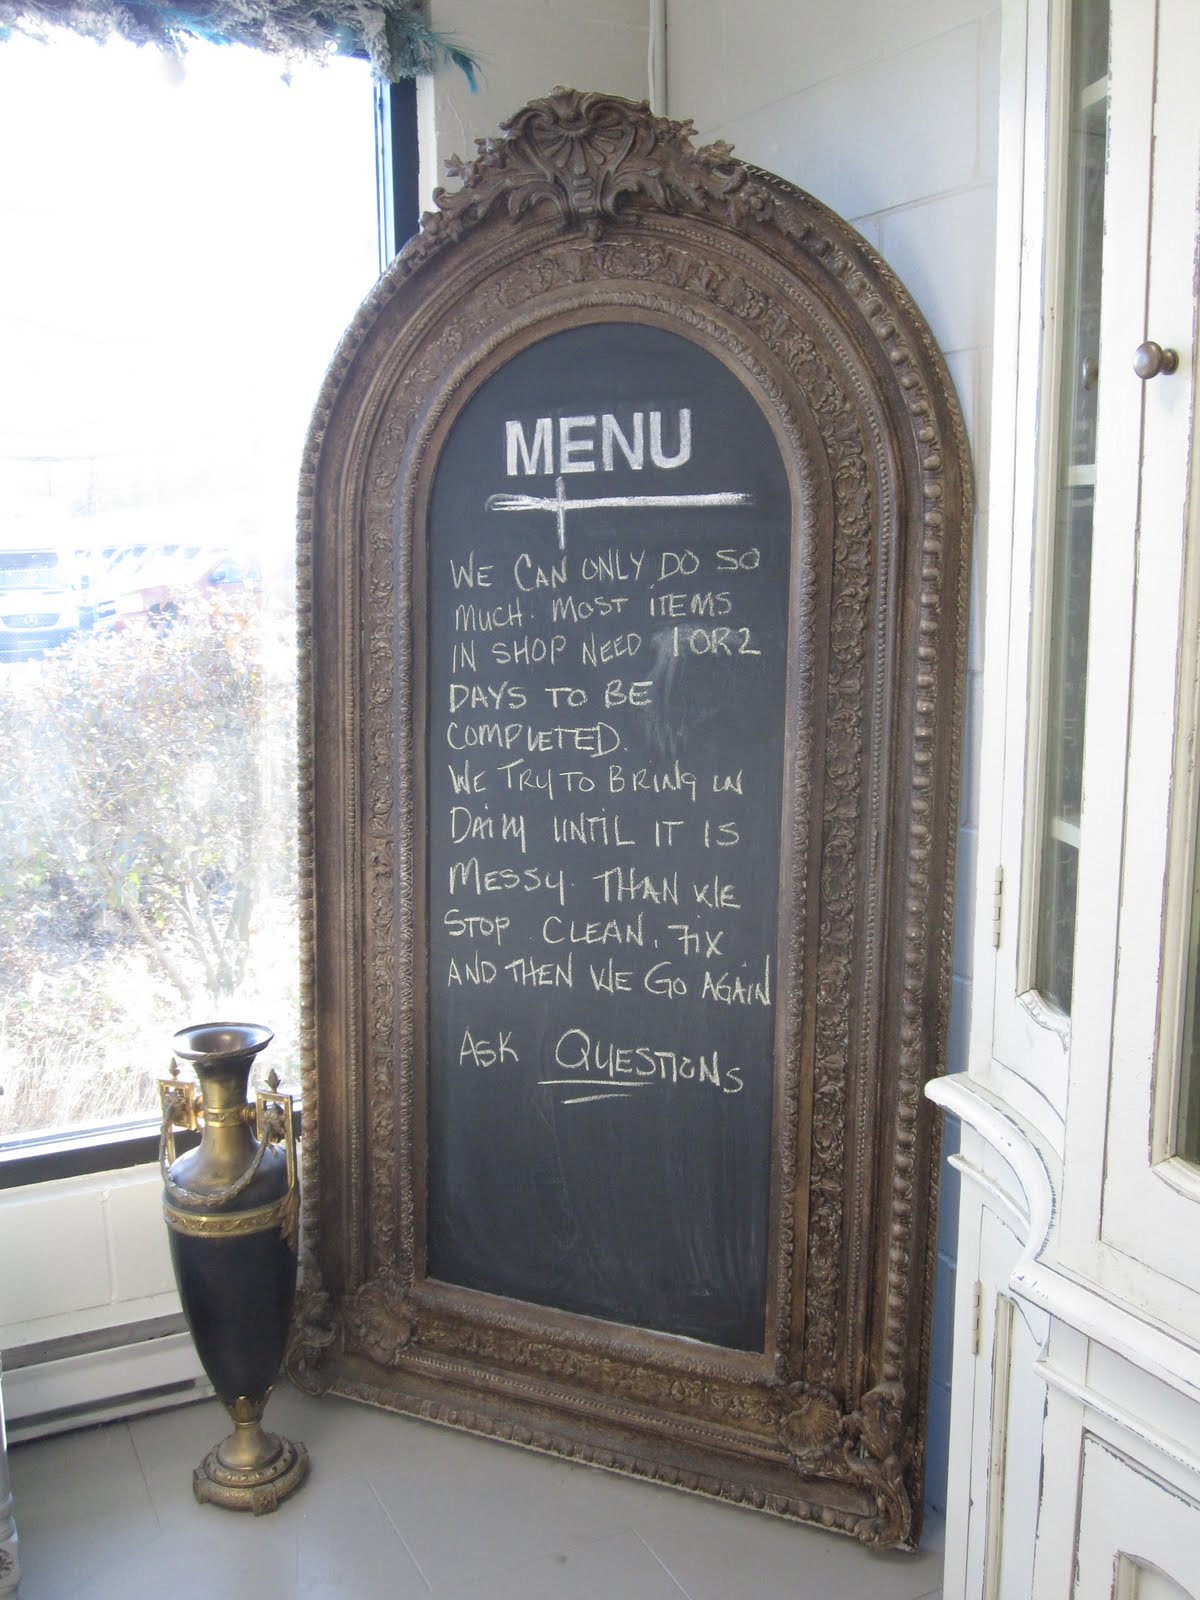 MENU
WE CAN ONLY DO SO
MUCH. MOST ITEMS
IN SHOP NEED 1 OR 2
DAYS TO BE
COMPLETED.
WE TRY TO BRING IN
DAILY UNTIL IT IS
MESSY. THAN WE
STOP CLEAN, FIX
AND THEN WE GO AGAIN
ASK QUESTIONS